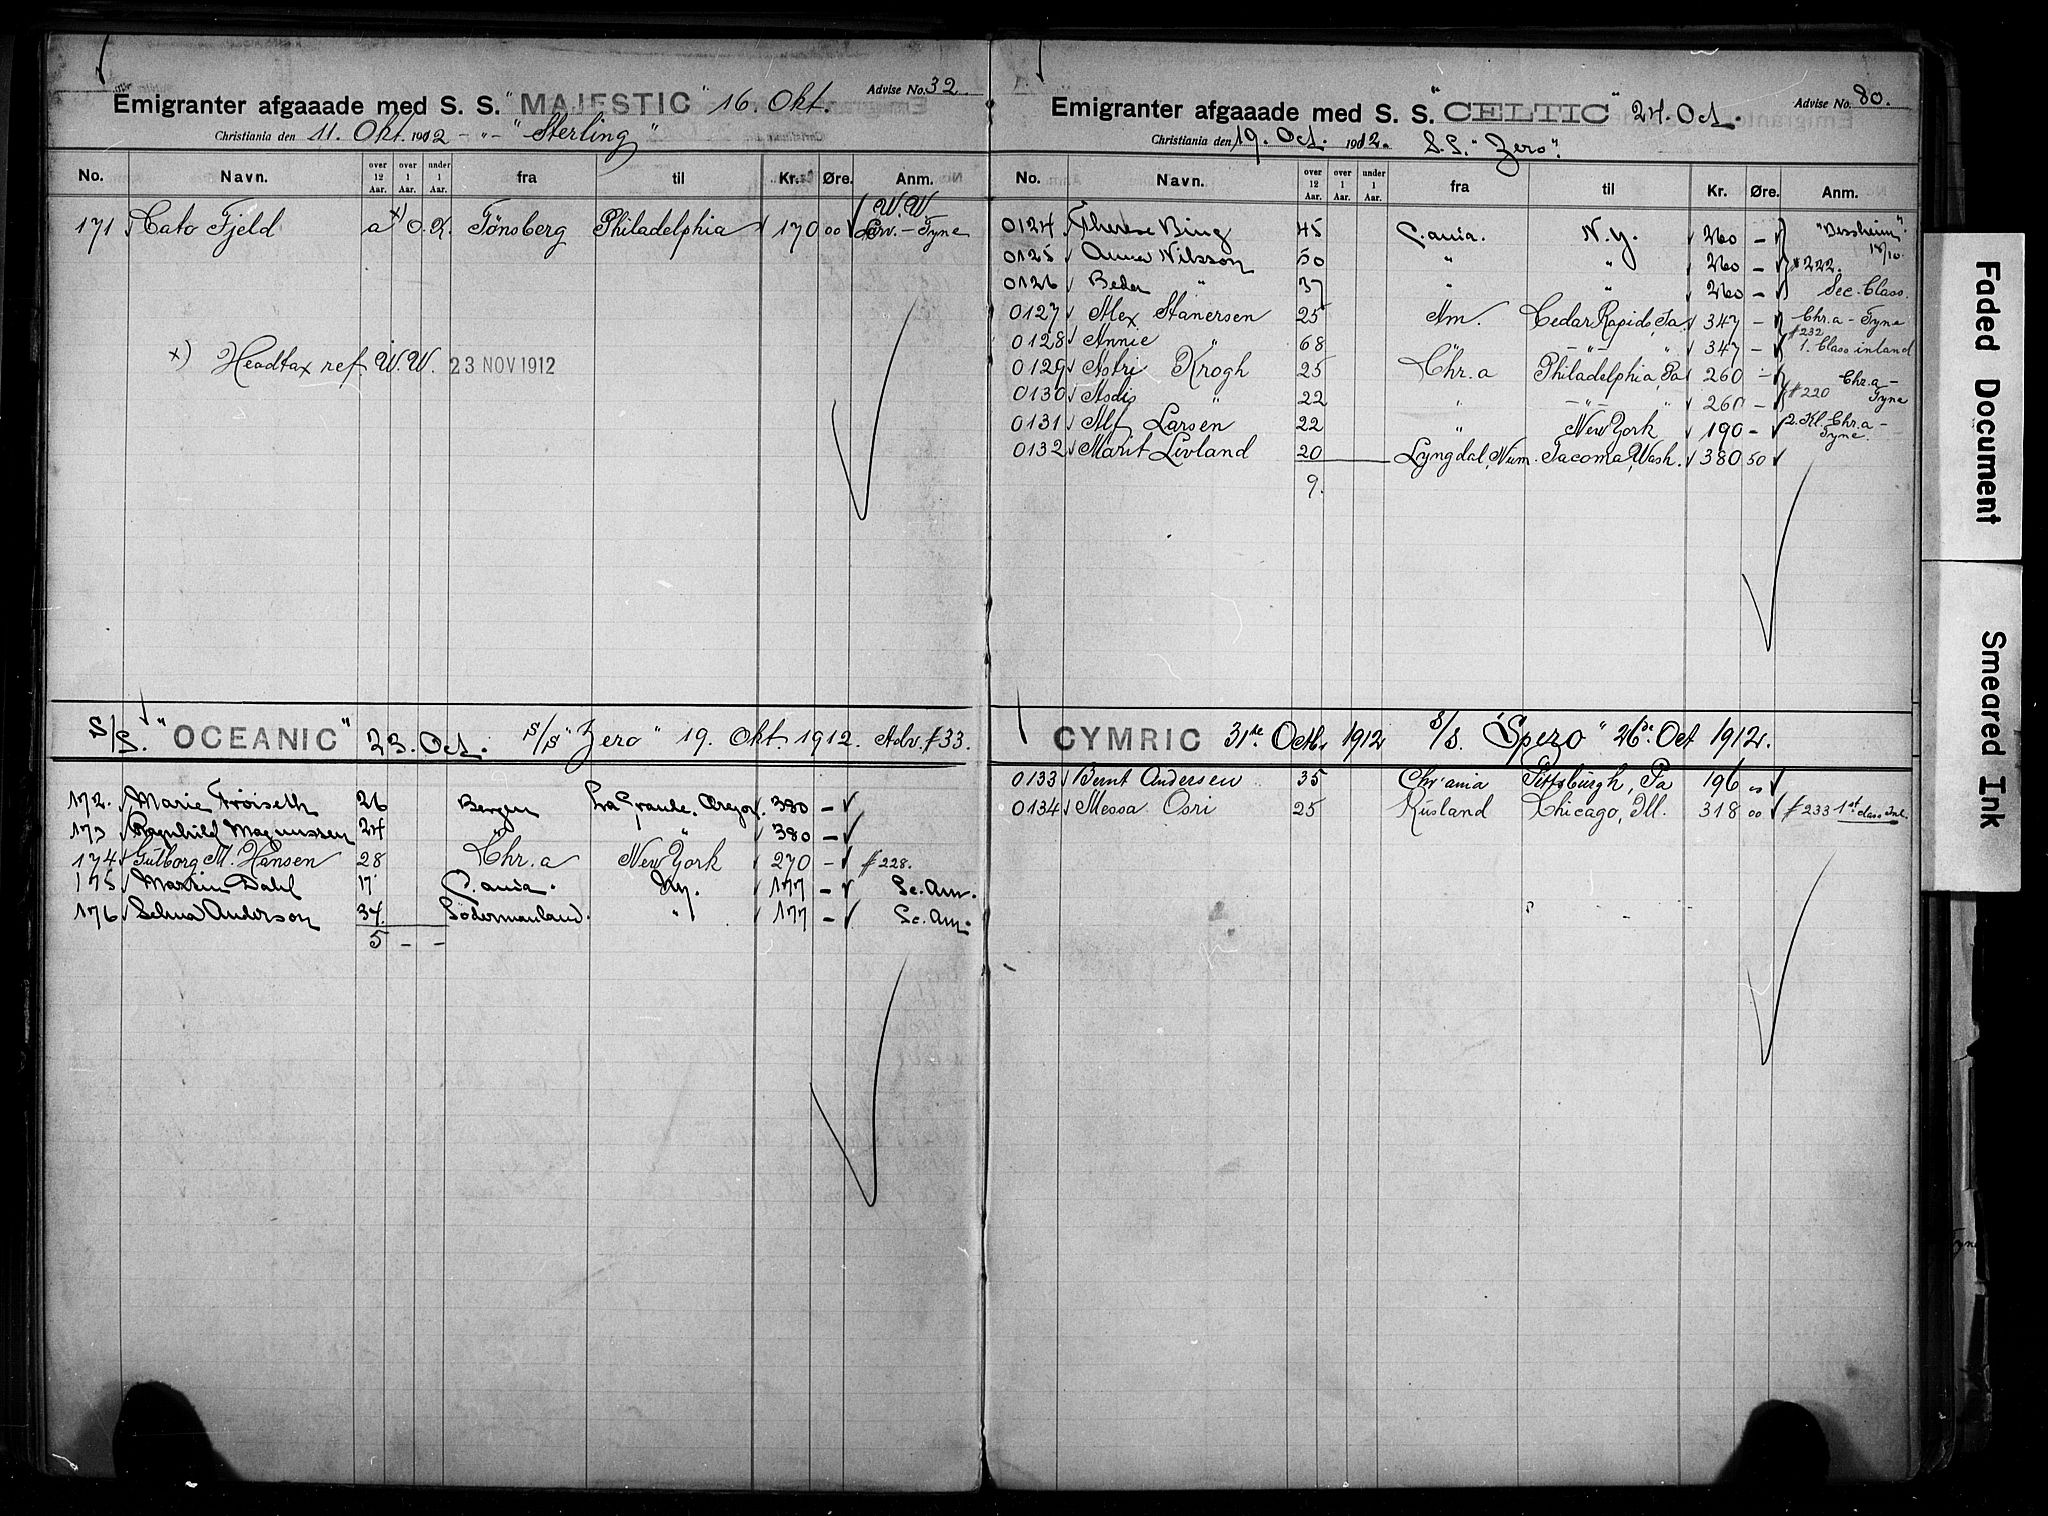 Advise No. 32
Emigranter afgaaade med S. S. "MAJESTIC" 16. Okt.
Christiania den 11. Okt. 1912 - „ - "Sterling"
No. Navn. over 12 Aar. over 1 Aar. under 1 Aar. fra til Kr. Øre. Anm.
W. W
171 Cato Fjeld a x) O. K. Tönsberg Philadelphia 170 00 - Tyne
x) Headtax ref. W. W. 23 NOV 1912
S/S. "OCEANIC" 23. Oct. s/s "Zero" 19. Okt. 1912. Adv. # 33.
172. Marie Fröiseth 26 Bergen La Grande, Oregon. 380 -
173 Ragnhild Magnussen 24 „ „ 380 -
174 Gulborg M. Hansen 28 Chr.a New York 270 - # 228.
175 Martin Dahl 17 C.ania. N.y. 177 - Sc. Am.
176 Selma Anderson 37. Södermanland. „ 177 - Sc. Am.
5 - -
Advise No. 80.
Emigranter afgaaade med S. S. "CELTIC" 24. Oct.
Christiania den 19. Oct. 1912. S.S. "Zero".
No. Navn. over 12 Aar. over 1 Aar. under 1 Aar. fra til Kr. Øre. Anm.
0124 Therese Bing 45 C.ania. N.Y. 260 - "Vessheim"
0125 Anna Nilsson 50 „ „ 260 - 18/10 # 222.
0126 Beda „ 37 „ „ 260 - Sec. Class.
0127 Alex Stanersen 25 Am. Cedar Rapids, Ia 347 - Chr.a - Tyne
0128 Annie 68 - „ - „ 347 - # 232 1. Class inland
0129 Astri Krogh 25 Chr.a Philadelphia, Pa 260 - Chr.a -
0130 Asdis „ 22 „ - „ - „ 260 - # 220 Tyne
0131 Alf Larsen 22 „ New York 190 - 2. Kl. Chr.a - Tyne.
0132 Marit Levland 20 Lyngdal, Num. Tacoma, Wash. 380 50
9.
CYMRIC 31te Octbr 1912 s/s. "Spero" 26de Oct 1912.
0133 Bernt Andersen 35 Chr'ania Pittsburgh, Pa 196 00
0134 Messa Osri 25 Rusland Chicago, Ill. 318 00 # 233 1st class Inl.
Faded Document
Smeared Ink